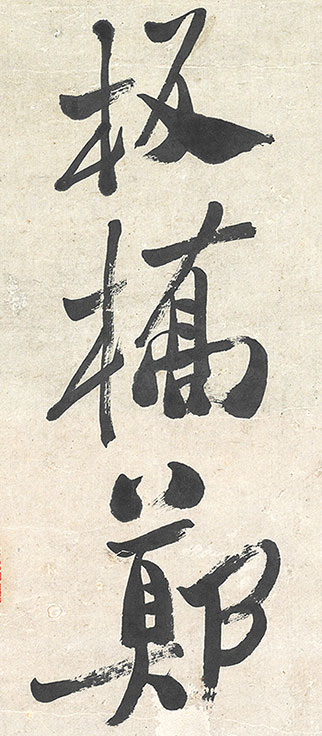 板橋鄭